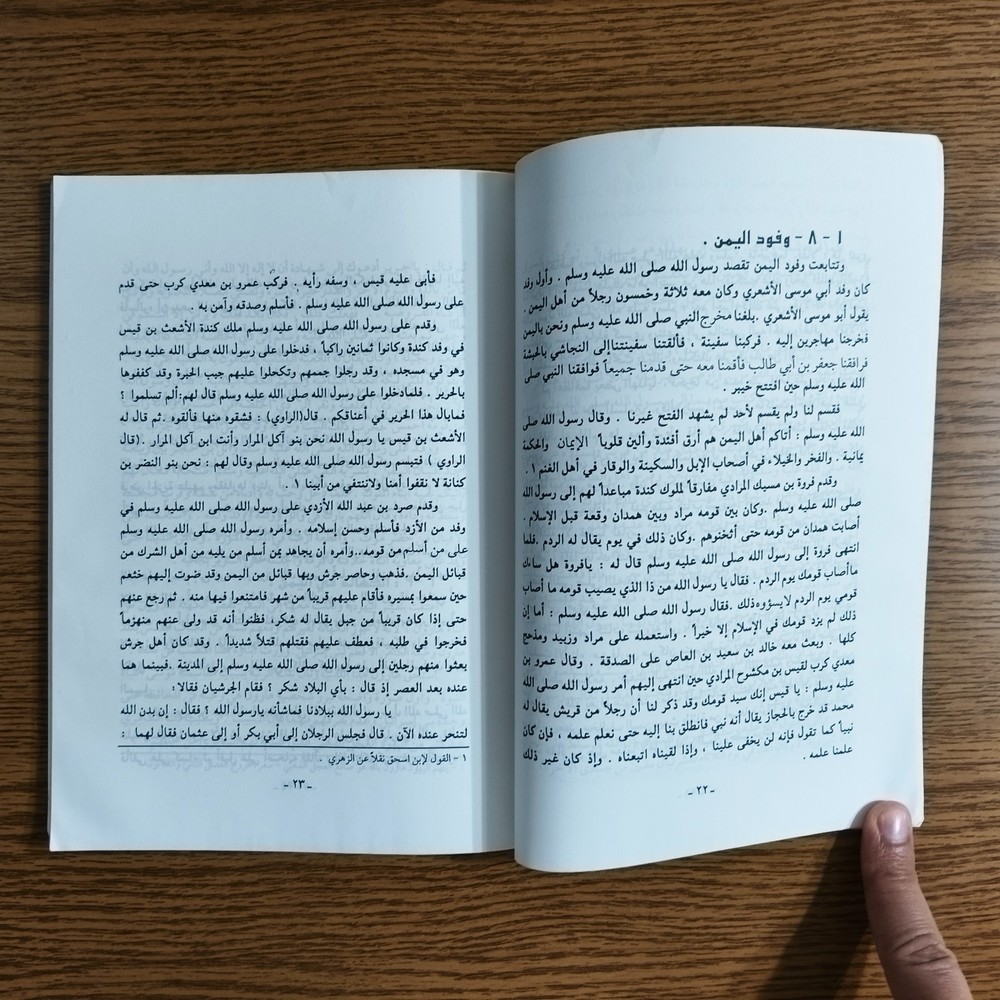 ١ - ٨ - وفود اليمن .
وتتابعت وفود اليمن تقصد رسول الله صلى الله عليه وسلم . وأول وفد
كان وفد أبي موسى الأشعري وكان معه ثلاثة وخمسون رجلاً من أهل اليمن .
يقول أبو موسى الأشعري .بلغنا مخرج النبي صلى الله عليه وسلم ونحن باليمن
فخرجنا مهاجرين إليه . فركبنا سفينة ، فألقتنا سفينتنا إلى النجاشي بالحبشة
فرافقنا جعفر بن أبي طالب فأقمنا معه حتى قدمنا جميعاً فوافقنا النبي صلى
الله عليه وسلم حين افتتح خيبر .
فقسم لنا ولم يقسم لأحد لم يشهد الفتح غيرنا . وقال رسول الله صلى
الله عليه وسلم : أتاكم أهل اليمن هم أرق أفئدة وألين قلوباً الإيمان والحكمة
يمانية . والفخر والخيلاء في أصحاب الإبل والسكينة والوقار في أهل الغنم ١ .
وقدم فروة بن مسيك المرادي مفارقاً لملوك كندة مباعداً لهم إلى رسول الله
صلى الله عليه وسلم .وكان بين قومه مراد وبين همدان وقعة قبل الإسلام .
أصابت همدان من قومه حتى أثخنوهم .وكان ذلك في يوم يقال له الردم .فلما
انتهى فروة إلى رسول الله صلى الله عليه وسلم قال له : يافروة هل ساءك
ماأصاب قومك يوم الردم . فقال يا رسول الله من ذا الذي يصيب قومه ما أصاب
قومي يوم الردم لايسؤوه ذلك .فقال رسول الله صلى الله عليه وسلم : أما إن
ذلك لم يزد قومك في الإسلام إلا خيراً . واستعمله على مراد وزبيد ومذحج
كلها . وبعث معه خالد بن سعيد بن العاص على الصدقة . وقال عمرو بن
معدي كرب لقيس بن مكشوح المرادي حين انتهى إليهم أمر رسول الله صلى الله
عليه وسلم : يا قيس إنك سيد قومك وقد ذكر لنا أن رجلاً من قريش يقال له
محمد قد خرج بالحجاز يقال أنه نبي فانطلق بنا إليه حتى نعلم علمه ، فإن كان
نبياً كما تقول فإنه لن يخفى علينا ، وإذا لقيناه اتبعناه . وإذ كان غير ذلك
علمنا علمه .
-٢٢-
فأبى عليه قيس ، وسفه رأيه . فركب عمرو بن معدي كرب حتى قدم
على رسول الله صلى الله عليه وسلم . فأسلم وصدقه وآمن به .
وقدم على رسول الله صلى الله عليه وسلم ملك كندة الأشعث بن قيس
في وفد كندة وكانوا ثمانين راكباً ، فدخلوا على رسول الله صلى الله عليه وسلم
وهو في مسجده ، وقد رجلوا جممهم وتكحلوا عليهم جيب الحبرة وقد كففوها
بالحرير . فلمادخلوا على رسول الله صلى الله عليه وسلم قال لهم:ألم تسلموا ؟
فمابال هذا الحرير في أعناقكم . قال(الراوي) : فشقوه منها فألقوه .ثم قال له
الأشعث بن قيس يا رسول الله نحن بنو آكل المرار وأنت ابن آكل المرار .(قال
الراوي ) فتبسم رسول الله صلى الله عليه وسلم وقال لهم : نحن بنو النضر بن
كنانة لا نقفوا أمنا ولاننتفي من أبينا ١ .
وقدم صرد بن عبد الله الأزدي على رسول الله صلى الله عليه وسلم في
وفد من الأزد فأسلم وحسن إسلامه . وأمره رسول الله صلى الله عليه وسلم
على من أسلم من قومه..وأمره أن يجاهد بمن أسلم من يليه من أهل الشرك من
قبائل اليمن .فذهب وحاصر جرش وبها قبائل من اليمن وقد ضوت إليهم خثعم
حين سمعوا بمسيره فأقام عليهم قريباً من شهر فامتنعوا فيها منه . ثم رجع عنهم
حتى إذا كان قريباً من جبل يقال له شكر، فظنوا أنه قد ولى عنهم منهزماً
فخرجوا في طلبه ، فعطف عليهم فقتلهم قتلاً شديداً . وقد كان أهل جرش
بعثوا منهم رجلين إلى رسول الله صلى الله عليه وسلم إلى المدينة .فبينما هما
عنده بعد العصر إذ قال : بأي البلاد شكر ؟ فقام الجرشيان فقالا:
يا رسول الله ببلادنا فماشأنه يارسول الله ؟ فقال : إن بدن الله
لتنحر عنده الآن . قال فجلس الرجلان إلى أبي بكر أو إلى عثمان فقال لهما :
١ - القول لابن اسحق نقلاً عن الزهري .
-٢٣-